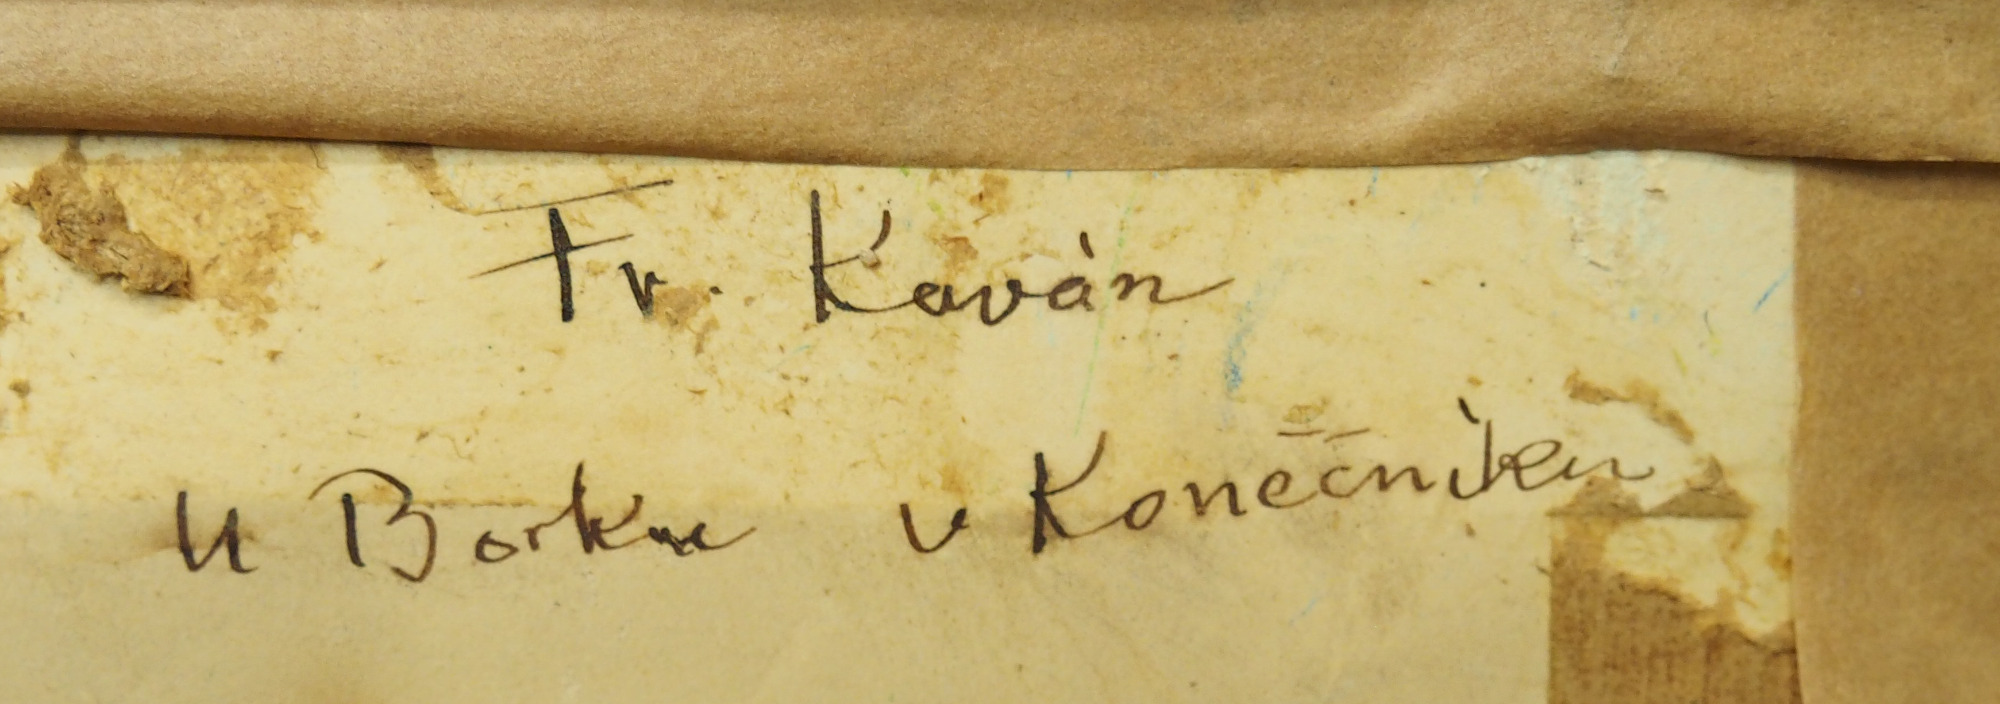 Fr. Kaván
U Borku v Konečníku